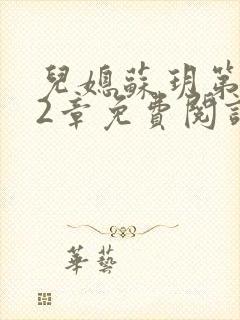 兒媳蘇玥第
2章免費閱讀
華藝